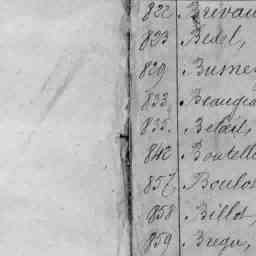 822 Brevau
823 Bedel,
829 Busne
833 Beaugea
835. Belait,
842 Boutelle
857 Boulo
858 Billot,
859 Bregu,